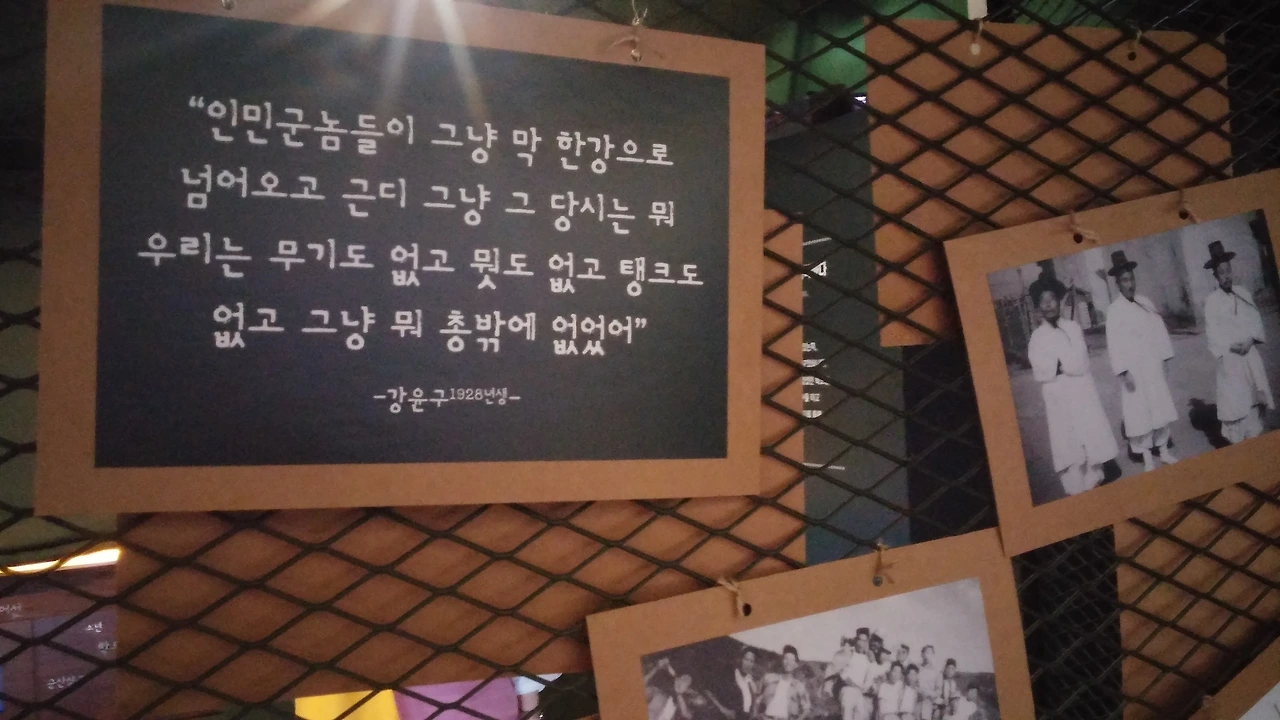 “인민군놈들이 그냥 막 한강으로
넘어오고 근디 그냥 그 당시는 뭐
우리는 무기도 없고 뭣도 없고 탱크도
없고 그냥 뭐 총밖에 없었어”
-강윤구1928년생-
소년